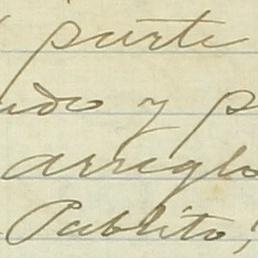 parte
udo y p
arreglo
Pablito,